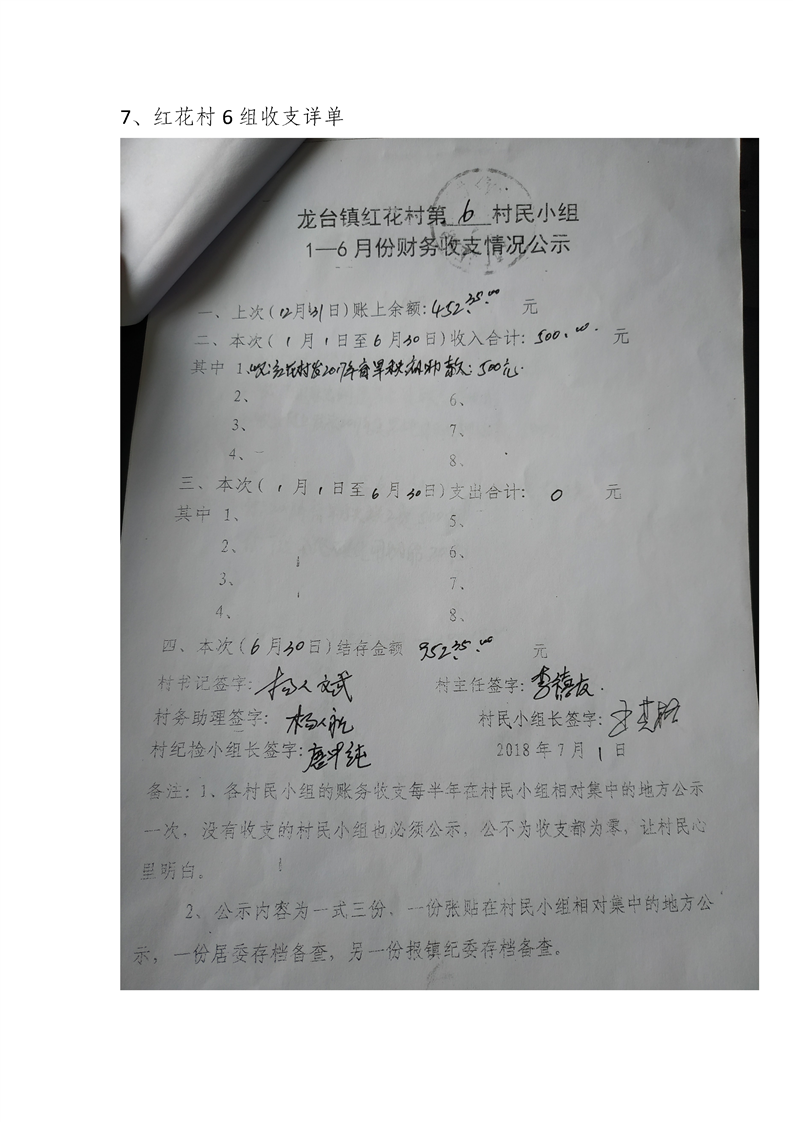 7、红花村 6 组收支详单
龙台镇红花村第 6 村民小组
1—6 月份财务收支情况公示
一、上次(12月31日)账上余额: 45235.00 元
二、本次( 1 月 1 日至 6 月 30 日)收入合计: 500.00 元
其中 1、 2017年育旱秧 款: 500元.
2、 6、
3、 7、
4、 8、
三、本次( 1 月 1 日至 6 月 30 日)支出合计: 0 元
其中 1、 5、
2、 6、
3、 7、
4、 8、
四、本次( 6 月 30 日)结存金额 元
村书记签字: 杨文武 村主任签字: 李禧友
村务助理签字: 村民小组长签字:
村纪检小组长签字: 唐甲纯 2018 年 7 月 1 日
备注: 1、各村民小组的账务收支每半年在村民小组相对集中的地方公示
一次, 没有收支的村民小组也必须公示, 公不为收支都为零, 让村民心
里明白。
2、公示内容为一式三份、一份张贴在村民小组相对集中的地方公
示, 一份居委存档备查, 另一份报镇纪委存档备查。